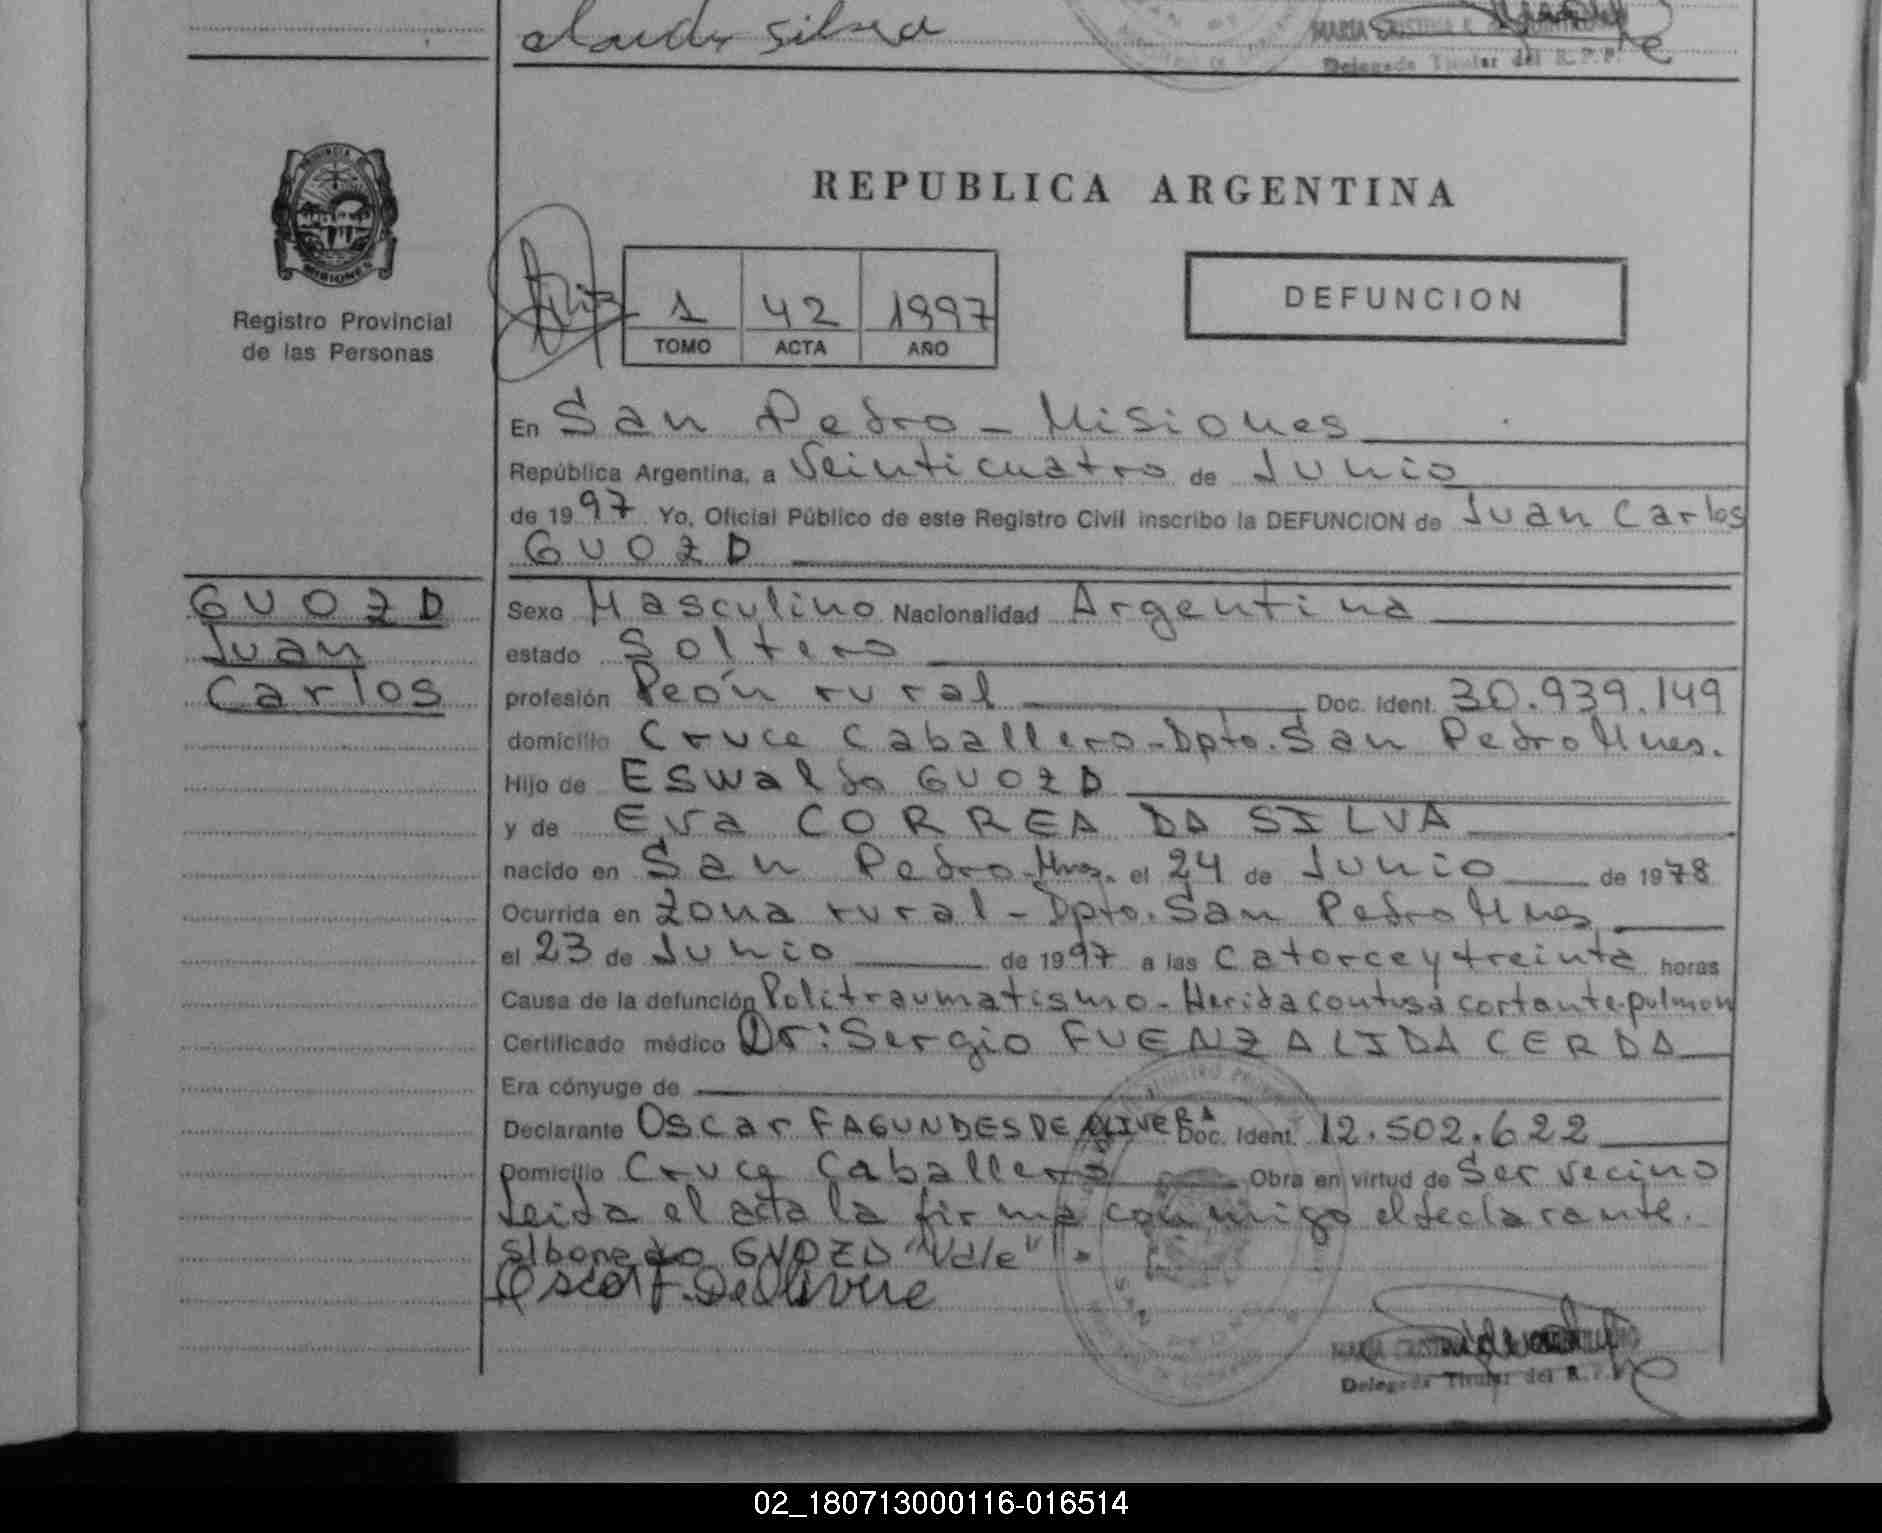 Claudio Silva
Delegada Titular del R.P.P.
PROVINCIA DE
MISIONES
Registro Provincial
de las Personas
REPUBLICA ARGENTINA
1 42 1997
TOMO ACTA AÑO
DEFUNCION
En San Pedro - Misiones
República Argentina, a Veinticuatro de Junio
de 1997 Yo, Oficial Público de este Registro Civil inscribo la DEFUNCION de Juan Carlos
GUOZD
GUOZD
Juan
Carlos
Sexo Masculino Nacionalidad Argentina
estado Soltero
profesión Peón rural Doc. Ident. 30.939.149
domicilio Cruce Caballero - Dpto. San Pedro Mnes.
Hijo de ESwaldo GUOZD
y de Eva CORREA DA SILVA
nacido en San Pedro - Mnes. el 24 de Junio de 1978
Ocurrida en Zona rural - Dpto. San Pedro Mnes
el 23 de Junio de 1997 a las Catorce y treinta horas
Causa de la defunción Politraumatismo - Herida contusa cortante pulmon
Certificado médico Dr: Sergio FUENZALIDA CERDA
Era cónyuge de
Declarante Oscar FAGUNDES DE OLIVERA Doc. Ident. 12.502.622
Domicilio Cruce Caballero Obra en virtud de Ser vecino
Leida el acta la firma conmigo el declarante.
S/borrado GUOZD "Vale".
Oscar F. De Olivue
Delegada Titular del R.P.P.
02_180713000116-016514